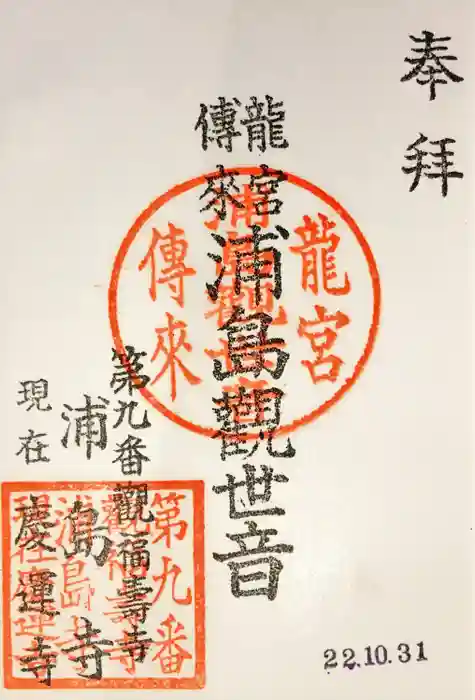 奉拝
龍宮
傳來
浦島觀世音
龍宮
傳來
浦島觀世音
第九番觀福壽寺
浦島寺
現在慶運寺
第九番
觀福壽寺
浦島寺
現在慶運寺
22.10.31